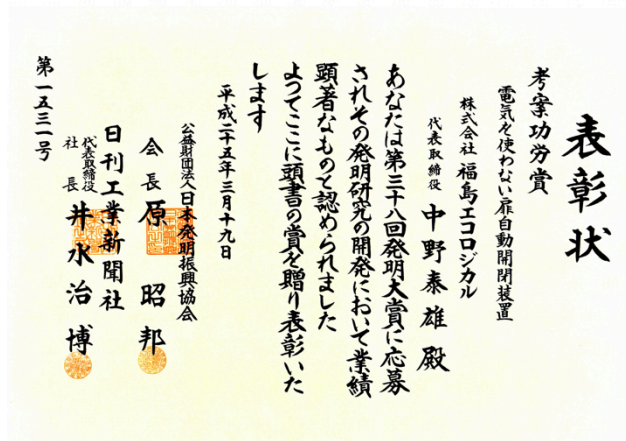 表彰状
考案功労賞
電気を使わない扉自動開閉装置
株式会社 福島エコロジカル
代表取締役 中野泰雄 殿
あなたは第三十八回発明大賞に応募
されその発明研究の開発において業績
顕著なものて認められました
よつてここに頭書の賞を贈り表彰いた
します
平成二十五年三月十九日
公益財団法人日本発明振興協会
会長 原 昭邦
日刊工業新聞社
代表取締役
社長 井水治博
第一五三一号